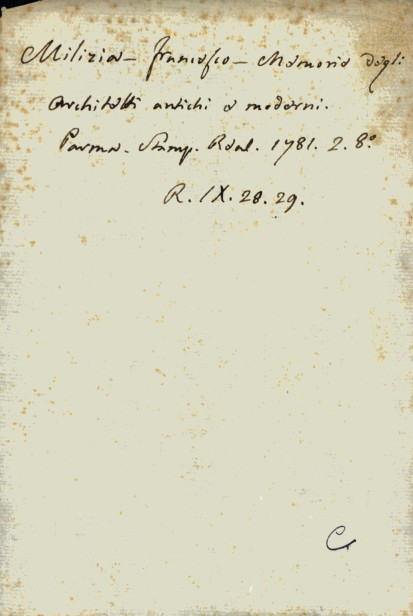 Milizia - Francesco - Memorie degli
Architetti antichi e moderni.
Parma. Stamp. Real. 1781. 2. 8.º
R. IX. 28. 29.
C